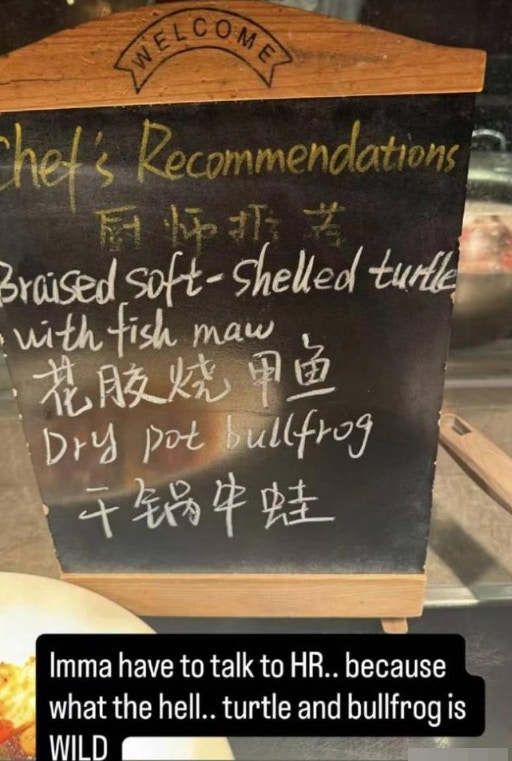 WELCOME
Chef's Recommendations
厨师推荐
Braised soft-shelled turtle
with fish maw
花胶烧甲鱼
Dry pot bullfrog
干锅牛蛙
Imma have to talk to HR.. because
what the hell.. turtle and bullfrog is
WILD